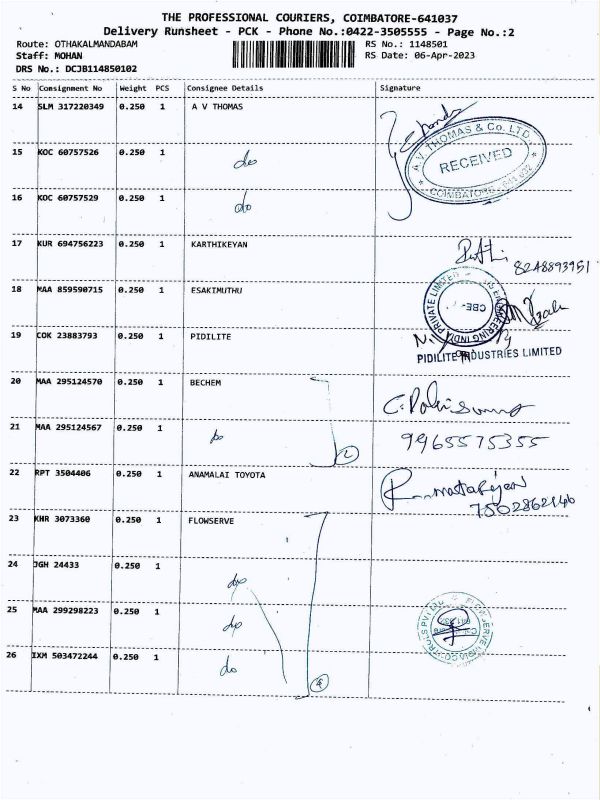 THE PROFESSIONAL COURIERS, COIMBATORE-641037
Delivery Runsheet - PCK - Phone No.:0422-3505555 - Page No.:2
Route: OTHAKALMANDABAM RS No.: 1148501
Staff: MOHAN RS Date: 06-Apr-2023
DRS No.: DCJB114850102
S No Consignment No Weight PCS Consignee Details Signature
14 SLM 317220349 0.250 1 A V THOMAS
A.V. THOMAS & Co. LTD.
RECEIVED
COIMBATORE
15 KOC 60757526 0.250 1 do
16 KOC 60757529 0.250 1 do
17 KUR 694756223 0.250 1 KARTHIKEYAN
8248893951
18 MAA 859590715 0.250 1 ESAKIMUTHU
ENGINEERING INDIA PRIVATE LIMITED
CBE
19 COK 23883793 0.250 1 PIDILITE
PIDILITE INDUSTRIES LIMITED
20 MAA 295124570 0.250 1 BECHEM
21 MAA 295124567 0.250 1 do
9965575355
22 RPT 3504406 0.250 1 ANAMALAI TOYOTA
7502862146
23 KHR 3073360 0.250 1 FLOWSERVE
24 JGH 24433 0.250 1 do
25 MAA 299298223 0.250 1 do
26 IXM 503472244 0.250 1 do